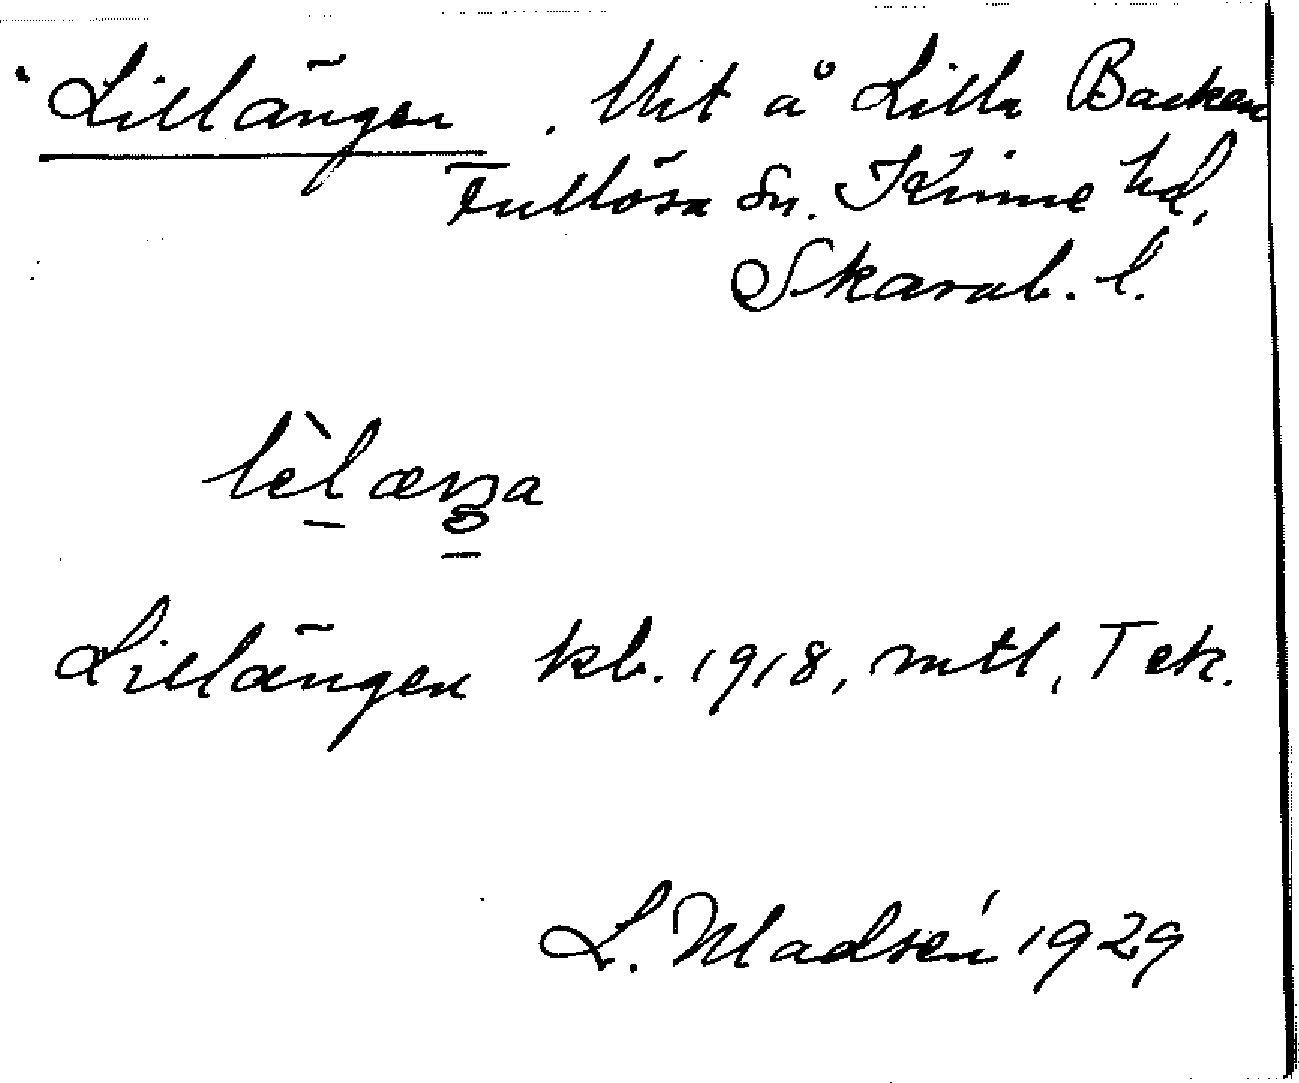 Lillängen. Utj å Lilla Backen
Fullösa sn. Kinne hd,
Skarab. l.
lèlæŋa
Lillängen kb. 1918, mtl, Tek.
L. Madsén 1929